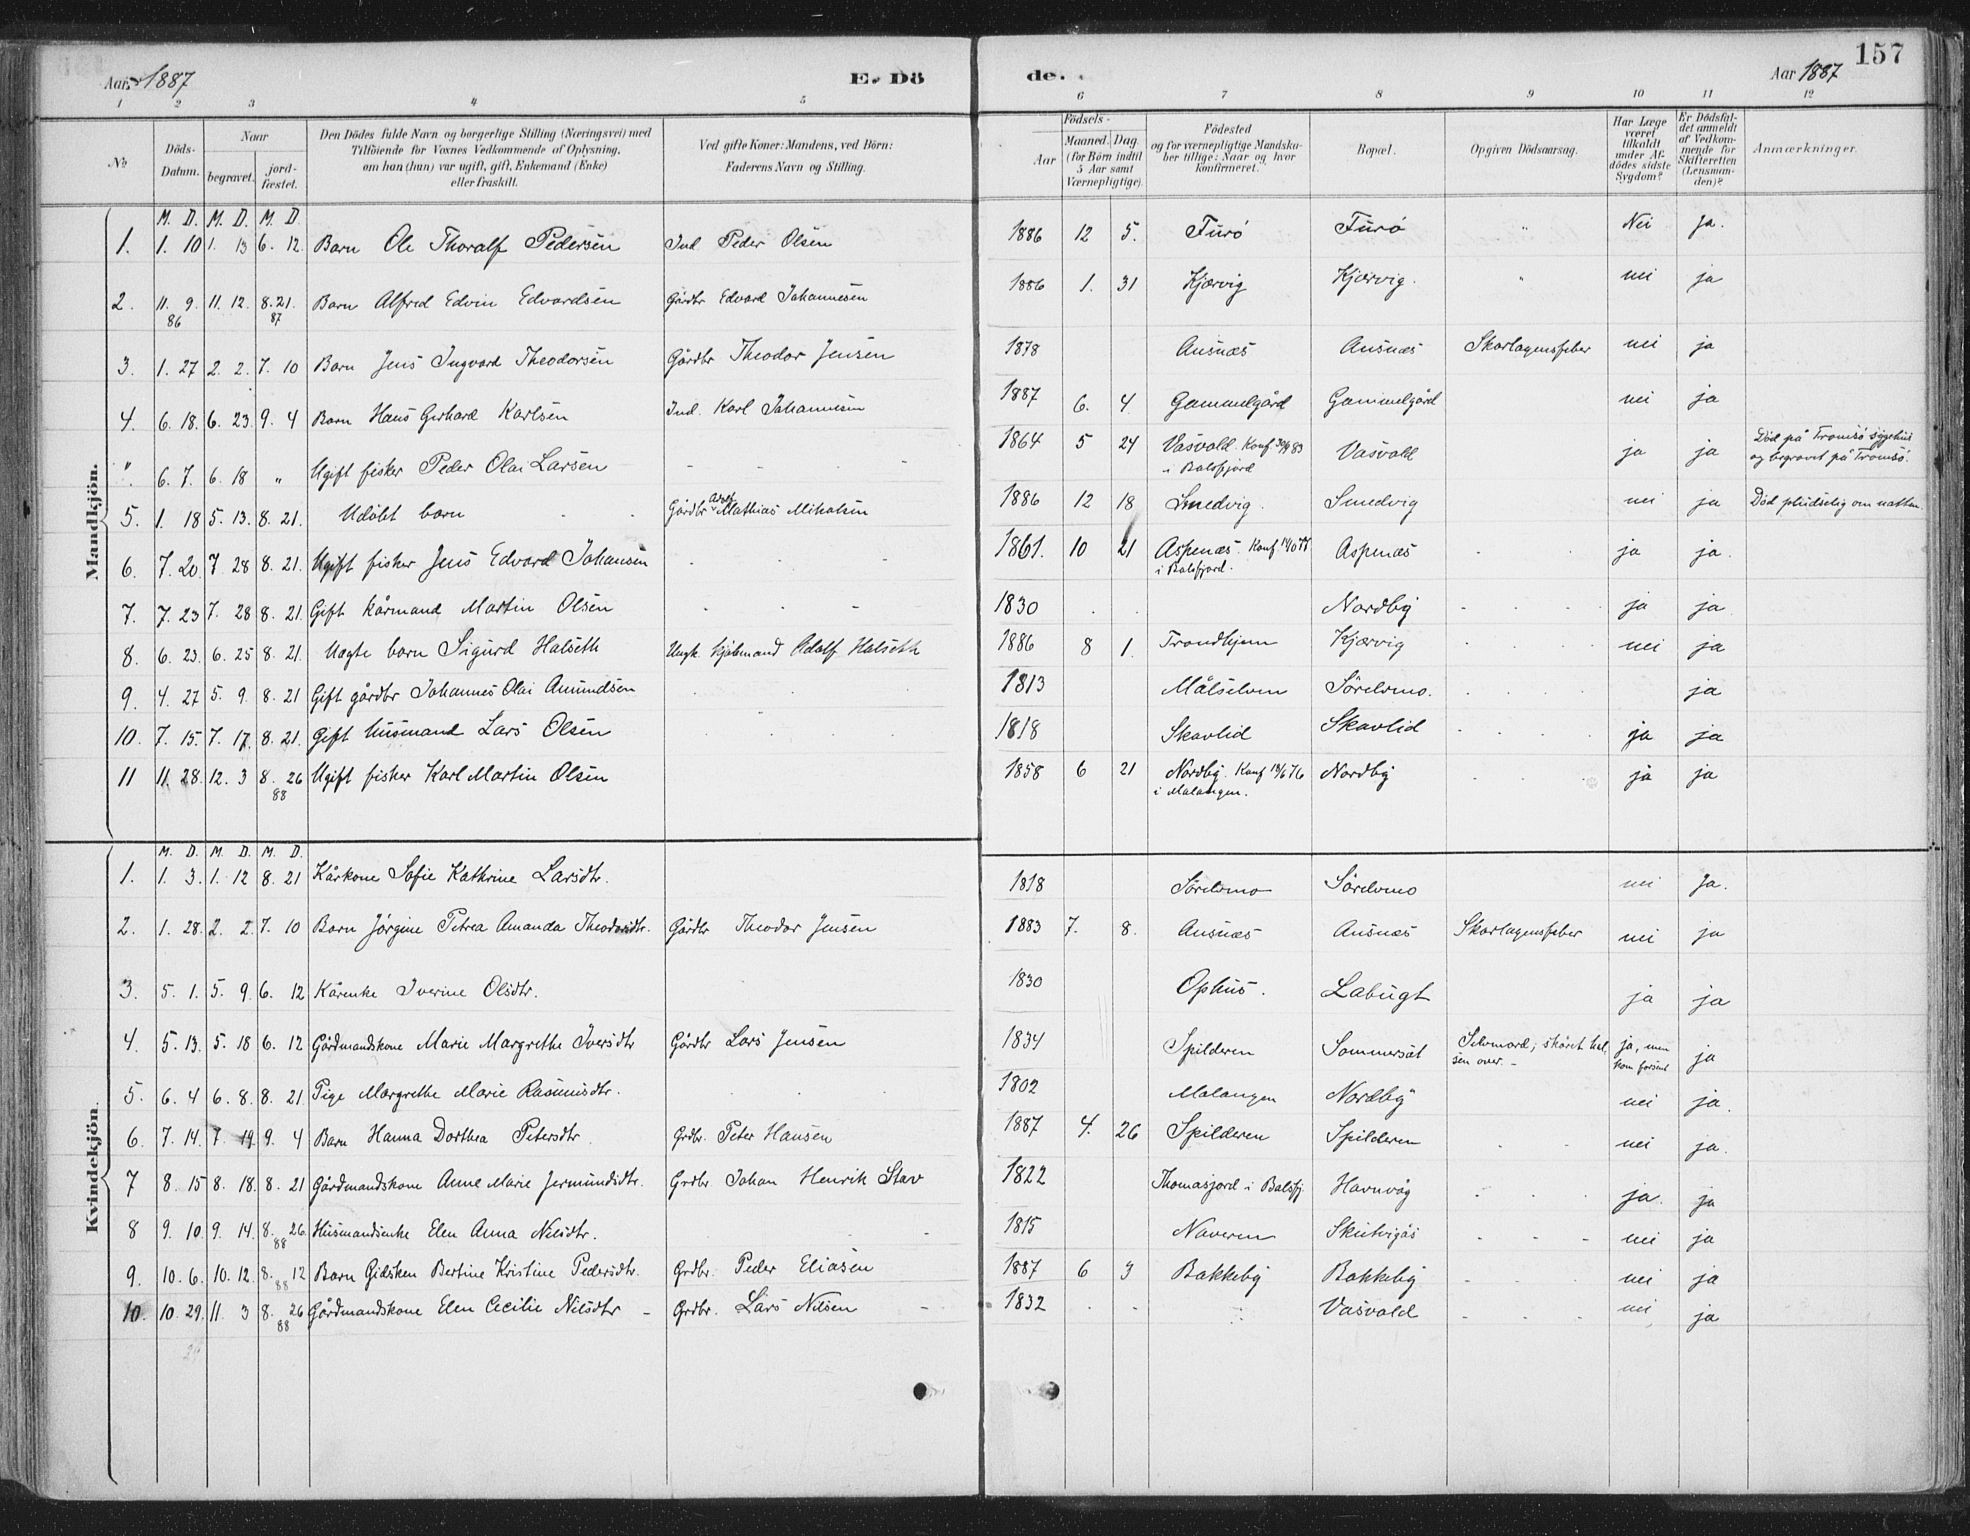 Aar 1887
E. Dö
de.
Aar 1887
157
1 2 3 4 5 6 7 8 9 10 11 12
No
Döds-Datum.
Naar
begravet.
jord-fæstet.
Den Dödes fulde Navn og borgerlige Stilling (Næringsvei) med
Tilföiende for Voxnes Vedkommende af Oplysning,
om han (hun) var ugift, gift, Enkemand (Enke)
eller fraskilt.
Ved gifte Koner: Mandens, ved Börn:
Faderens Navn og Stilling.
Födsels-
Aar
Maaned. Dag
(for Börn indtil
5 Aar samt
Værnepligtige).
Födested
og for værnepligtige Mandska-
ber tillige: Naar og hvor
konfirmeret.
Bopæl.
Opgiven Dödsaarsag.
Har Læge
været
tilkaldt
under Af-
dödes sidste
Sygdom?
Er Dödsfal-
det anmeldt
af Vedkom-
mende for
Skifteretten
(Lensman-
den)?
Anmærkninger.
Mandkjön.
M. D. M. D. M. D.
1. 1. 10 1. 13 6. 12 Barn Ole Thoralf Pedersen Ind Peder Olsen 1886 12 5. Furö Furö " Nei Ja.
2. 11. 9. 11. 12. 8. 21. Barn Alfred Edvin Edvardsen Gårdbr Edvard Johannesen 1886 1. 31 Kjærvig Kjærvig. " nei ja
86 87
3. 1. 27 2. 2. 7. 10 Barn Jens Ingvard Theodorsen Gårdbr Theodor Jensen 1878 Ausnæs Ausnæs Skarlagensfeber nei ja
4. 6. 18. 6. 23. 9. 4 Barn Hans Gerhard Karlsen Ind. Karl Johannesen 1887 6. 4. Gammelgård Gammelgård nei ja
" 6. 7. 6. 18 " Ugift fisker Peder Olai Larsen 1864 5 24 Vasvold. Konf 30/9 83 Vasvold ja ja Död på Tromsö sygehus
i Balsfjord og begravet på Tromsö.
5. 1. 18 5. 13. 8. 21. Udöbt barn Gårdbr Mathias Mikalsen 1886 12 18 Smedvig. Smedvig nei ja Död pludselig om natten.
6. 7. 20. 7. 28 8. 21. Ugift fisker Jens Edvard Johansen 1861. 10 21 Aspenæs. Konf Aspenæs ja ja.
i Balsfjord.
7. 7. 23 7. 28 8. 21. Gift kårmand Martin Olsen 1830 Nordby ja ja
8. 6. 23. 6. 25 8. 21. Uægte barn Sigurd Halseth Ungk. Adolf Halseth 1886 8 1. Trondhjem Kjærvig nei ja
9. 4. 27 5. 9. 8. 21 Gift gårdbr Johannes Olai Amundsen 1813 Målselven Sörelvmo. ja
10. 7. 15. 7. 17. 8. 21. Gift husmand Lars Olsen 1818 Skavlid Skavlid ja ja
11 11. 28. 12. 3 8. 26 Ugift fisker Karl Martin Olsen 1858 6 21 Nordby. Konf 18/6 76 Nordby ja ja
88 i Malangen.
Kvindekjön.
M. D. M. D. M. D.
1. 1. 3. 1. 12 8. 21 Kårkone Sofie Kathrine Larsdtr. 1818 Sörelvmo Sörelvmo nei Ja.
2. 1. 28. 2. 2. 7. 10 Barn Jörgine Petrea Amanda Theodorsdtr. Gårdbr Theodor Jensen 1883 7. 8. Ausnæs Ausnæs Skarlagensfeber nei ja
3. 5. 1. 5. 9. 6. 12 Kårenke Iverine Olsdtr. 1830 Ophus. Labugt ja ja
4. 5. 13. 5. 18 6. 12 Gårdmandskone Marie Margrethe Iversdtr Gårdbr Lars Jensen 1834 Spilderen Sommersæt Selvmord; skåret hal- ja, men ja
sen over. kom forsent
5. 6. 4 6. 8. 8. 21 Pige Margrethe Marie Rasmusdtr. 1802 Malangen Nordby nei ja.
6. 7. 14. 7. 19. 9. 4 Barn Hanna Dorthea Petersdtr. Grdbr. Peter Hansen 1887 4. 26 Spilderen Spilderen nei ja.
7 8. 15 8. 18. 8. 21 Gårdmandskone Anne Marie Jermundsdtr. Grdbr. Johan Henrik Stav 1822 Thomasjord i Balsfj. Havnvåg ja. ja
8 9. 10. 9. 14. 8. 26. Husmandsenke Elen Anna Nilsdtr. 1815 Naveren Skutvigås nei ja
88
9. 10. 6. 10. 12. 8. 12 Barn Gidsken Bertine Kristine Pedersdtr. Grdbr. Peder Eliasen 1887 6 3 Bakkeby Bakkeby nei ja
88
10. 10. 29. 11. 3 8. 26 Gårdmandskone Elen Cecilie Nilsdtr Grdbr. Lars Nilsen 1832 Vasvold nei ja
88